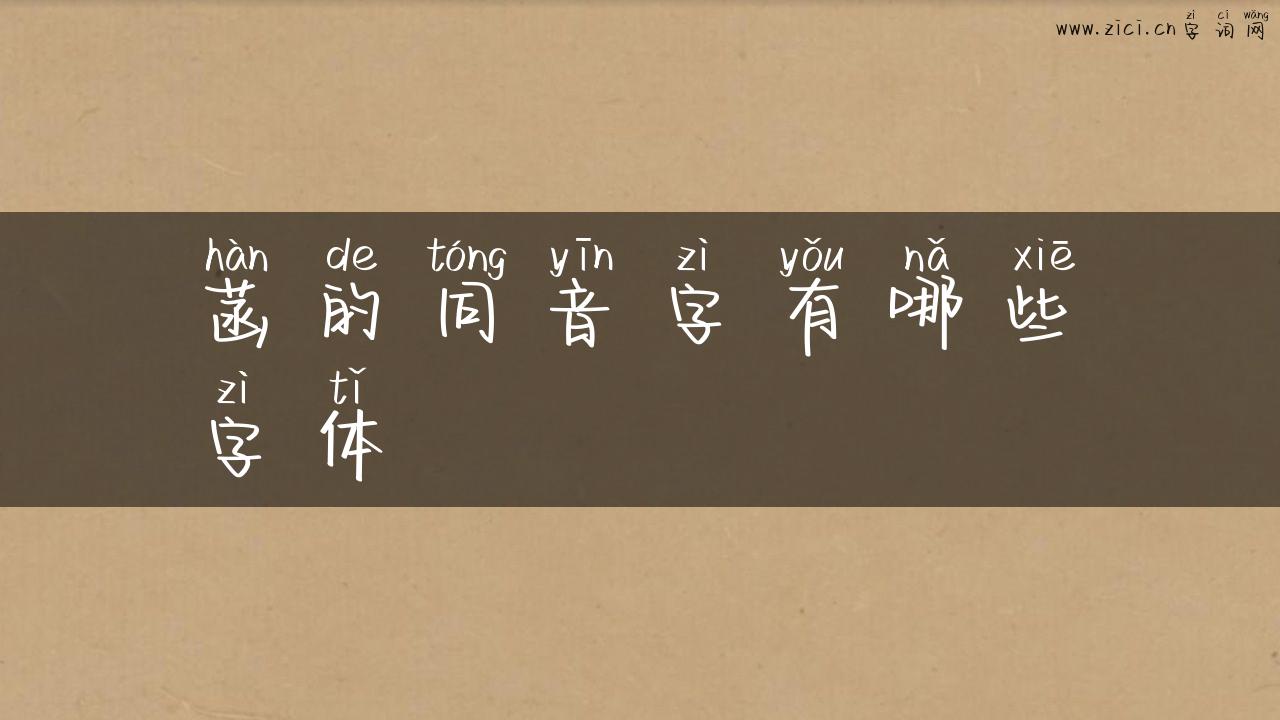 zì cí wǎng
www.zici.cn 字 词 网
hàn de tóng yīn zì yǒu nǎ xiē
菡 的 同 音 字 有 哪 些
zì tǐ
字 体